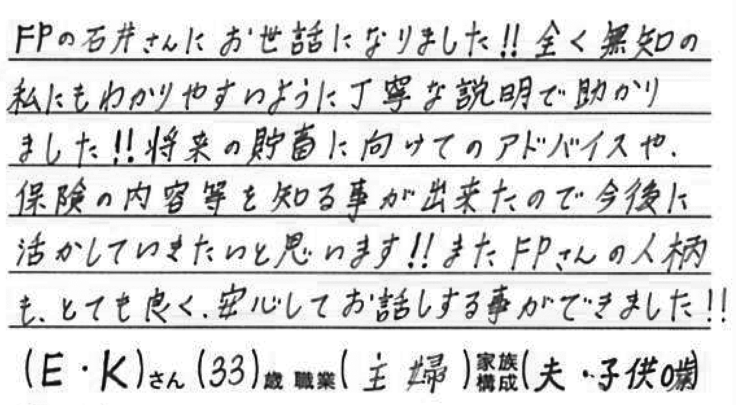 FPの石井さんにお世話になりました!!全く無知の
私にもわかりやすいように丁寧な説明で助かり
ました!!将来の貯蓄に向けてのアドバイスや、
保険の内容等を知る事が出来たので今後に
活かしていきたいと思います!!またFPさんの人柄
も、とても良く、安心してお話しする事ができました!!
(E・K)さん(33)歳 職業(主婦)家族構成(夫・子供0歳)